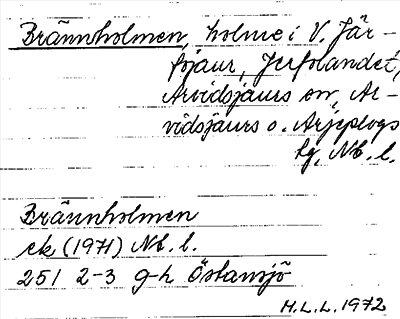 Brännholmen, holme i V. Jär-
fojaur, Jerfolandet,
Arvidsjaurs sn, Ar-
vidsjaurs o. Arjeplogs
tg, Nb. l.
Brännholmen
ek (1971) Nb. l.
251 2-3 g-h Östansjö
H.L.L. 1972